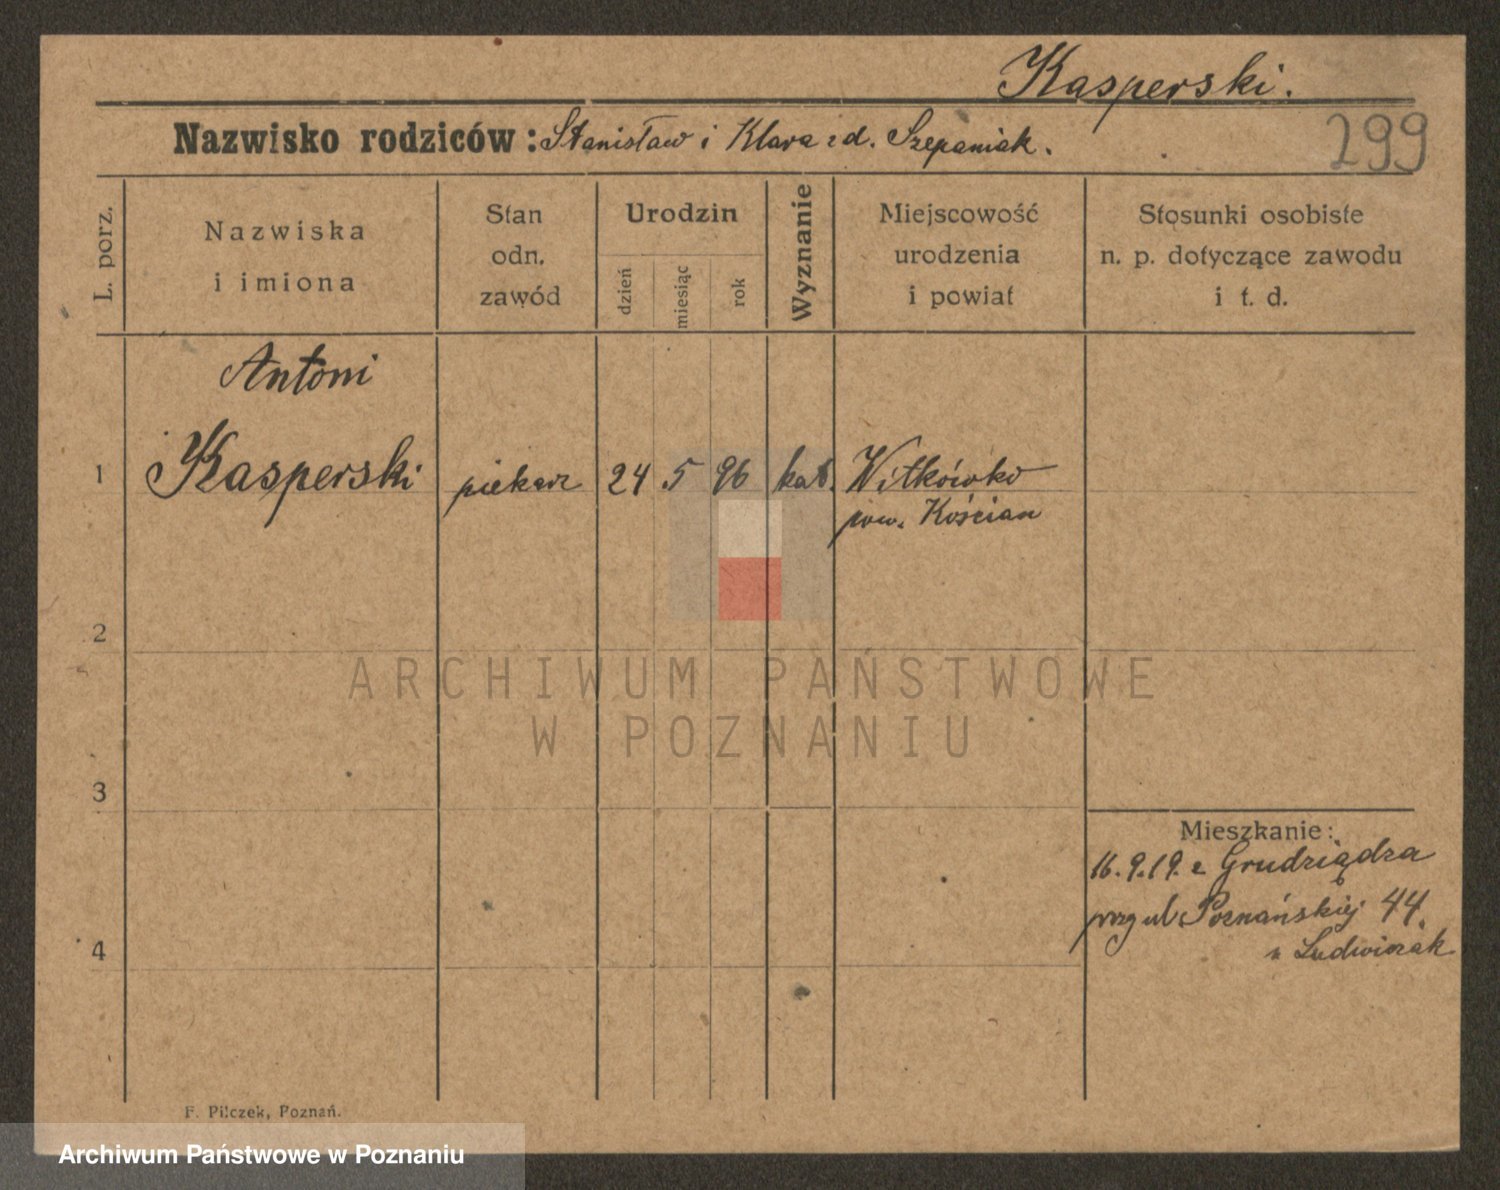 Kasperski.
299
Nazwisko rodziców: Stanisław i Klara z d. Szepaniak.
L. porz.
Nazwiska
i imiona
Stan
odn.
zawód
Urodzin
dzień
miesiąc
rok
Wyznanie
Miejscowość
urodzenia
i powiat
Stosunki osobiste
n. p. dotyczące zawodu
i t. d.
Antoni
1 Kasperski piekarz 24 5 96 kat. Witkówko
pow. Kościan
2
ARCHIWUM PAŃSTWOWE
W POZNANIU
3
Mieszkanie:
16.9.19. z Grudziądza
przy ul. Poznańskiej 44.
u Ludwiczak
4
F. Pilczek, Poznań.
Archiwum Państwowe w Poznaniu